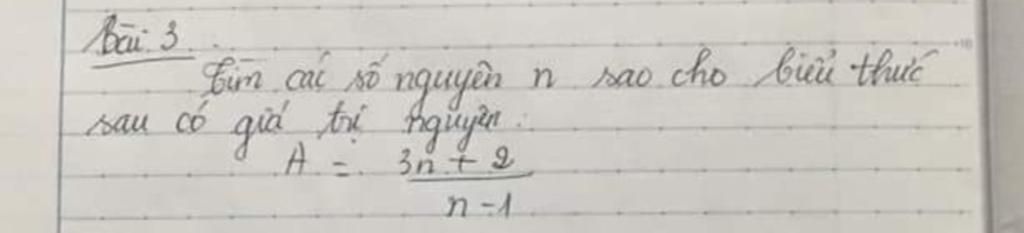 Bài 3
Tìm các số nguyên n sao cho biểu thức
sau có giá trị nguyên:
A = 3n + 2
n - 1